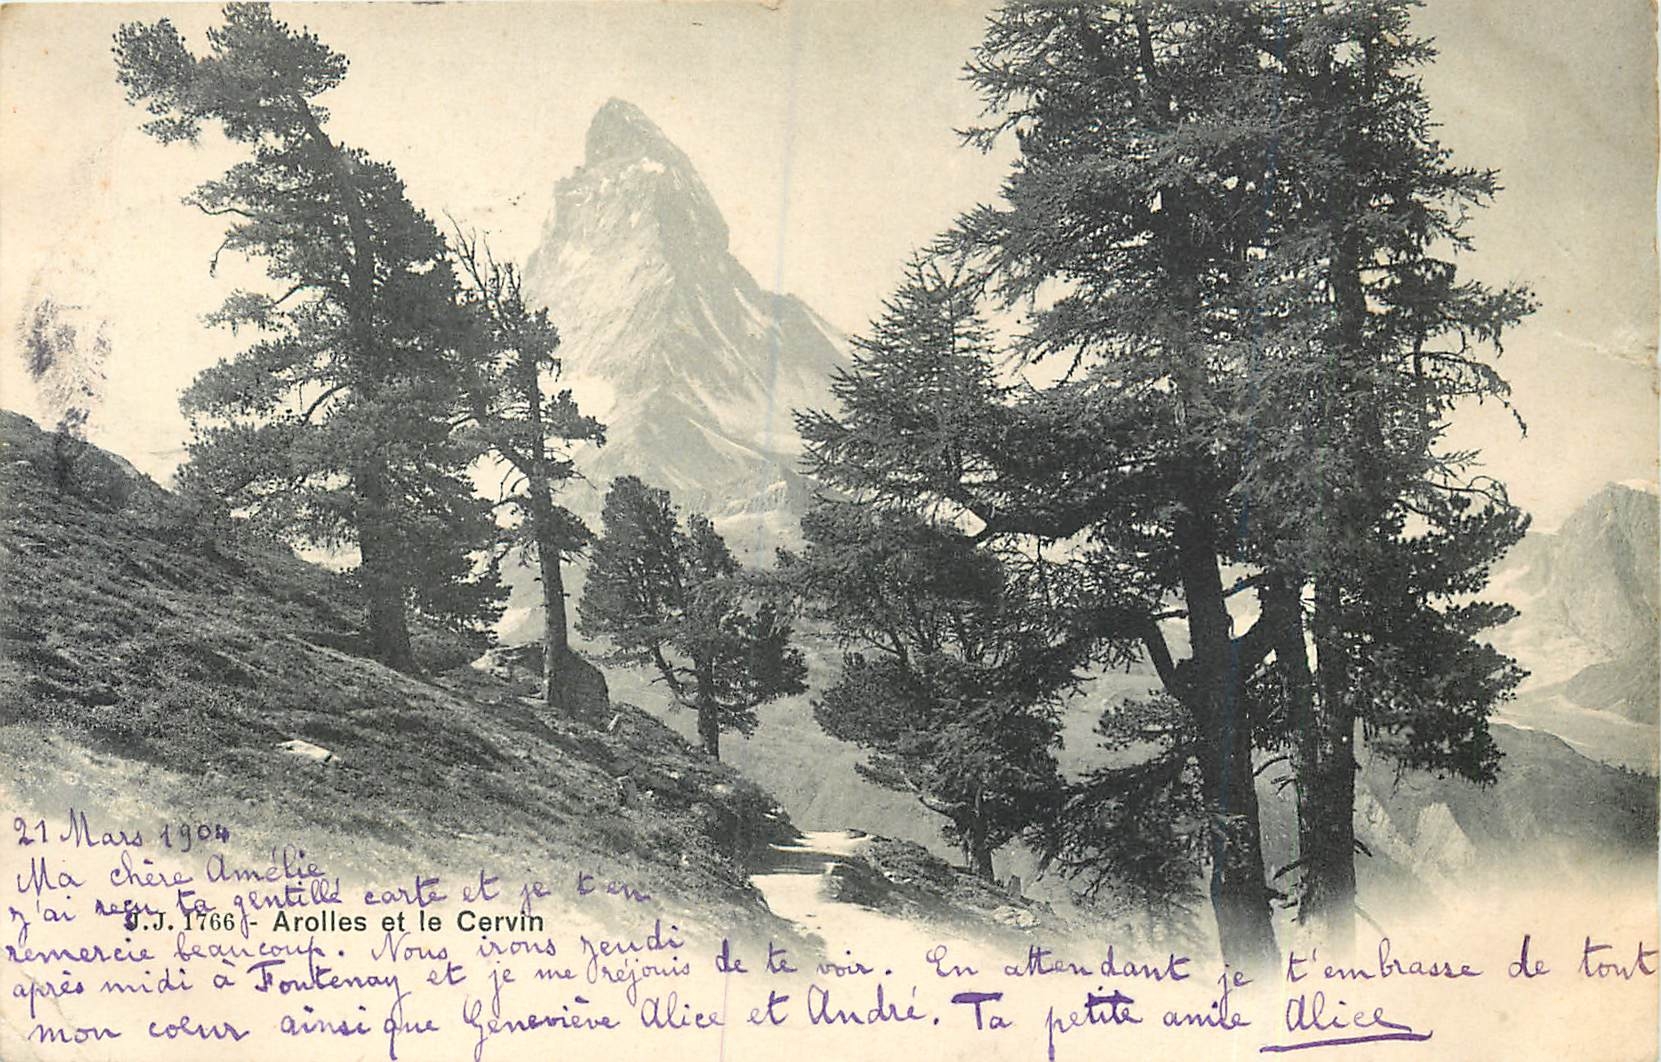 21 Mars 1904
Ma chère Amélie
J'ai reçu ta gentille carte et je t'en
J.J. 1766 - Arolles et le Cervin
remercie beaucoup. Nous irons jeudi
après midi à Fontenay et je me réjouis de te voir. En attendant je t'embrasse de tout
mon coeur ainsi que Geneviève Alice et André. Ta petite amie Alice